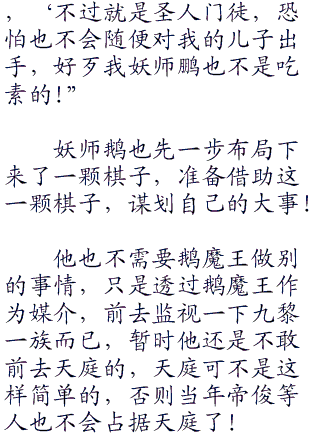 ，‘不过就是圣人门徒，恐
怕也不会随便对我的儿子出
手，好歹我妖师鹏也不是吃
素的！”
妖师鹅也先一步布局下
来了一颗棋子，准备借助这
一颗棋子，谋划自己的大事！
他也不需要鹅魔王做别
的事情，只是透过鹅魔王作
为媒介，前去监视一下九黎
一族而已，暂时他还是不敢
前去天庭的，天庭可不是这
样简单的，否则当年帝俊等
人也不会占据天庭了！